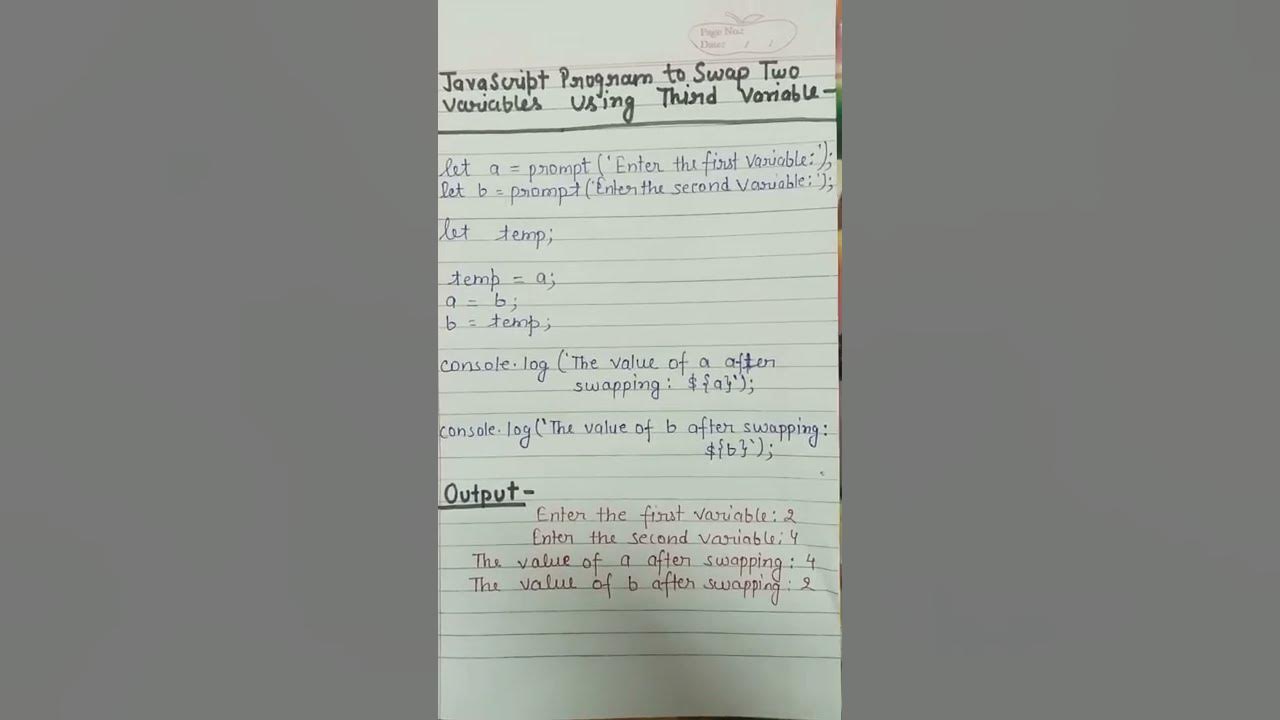 Page No.:
Date: / /
JavaScript Program to Swap Two
Variables Using Third Variable-
let a = prompt ('Enter the first variable:');
let b = prompt ('Enter the second variable:');
let temp;
temp = a;
a = b;
b = temp;
console.log (`The value of a after
swapping: ${a}`);
console.log(`The value of b after swapping:
${b}`);
Output-
Enter the first variable: 2
Enter the second variable: 4
The value of a after swapping: 4
The value of b after swapping: 2